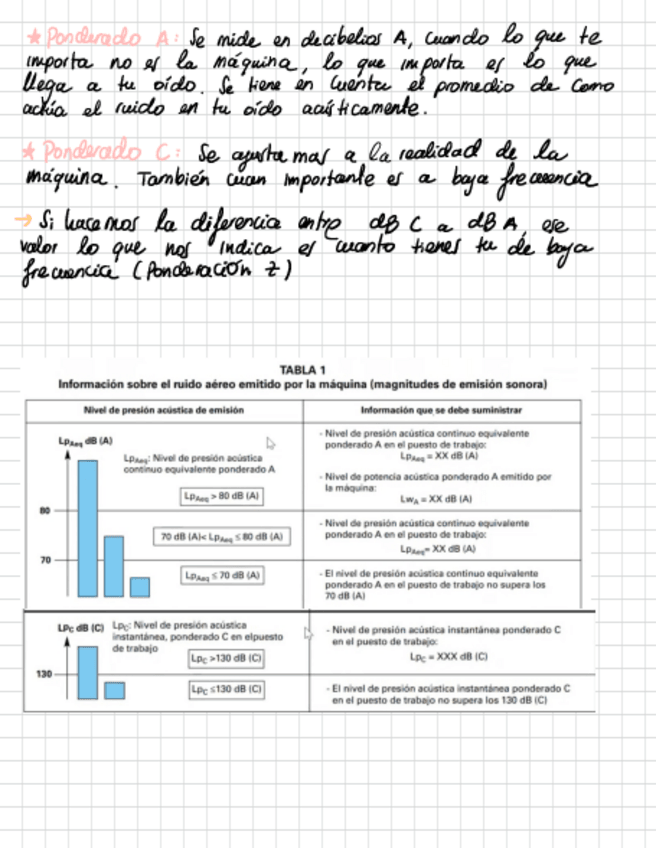 * Ponderado A: Se mide en decibelios A, cuando lo que te
importa no es la máquina, lo que importa es lo que
llega a tu oído. Se tiene en cuenta el promedio de como
actúa el ruido en tu oído acústicamente.
* Ponderado C: Se ajusta mas a la realidad de la
máquina. También cuan importante es a baja frecuencia
→ Si hacemos la diferencia entre dB C a dB A, ese
valor lo que nos indica es cuanto tienes tu de baja
frecuencia (Ponderación z)
TABLA 1
Información sobre el ruido aéreo emitido por la máquina (magnitudes de emisión sonora)
Nivel de presión acústica de emisión
Información que se debe suministrar
LpAeq dB (A)
LpAeq: Nivel de presión acústica
continuo equivalente ponderado A
LpAeq > 80 dB (A)
80
70 dB (A)< LpAeq ≤ 80 dB (A)
70
LpAeq ≤ 70 dB (A)
- Nivel de presión acústica continuo equivalente
ponderado A en el puesto de trabajo:
LpAeq = XX dB (A)
- Nivel de potencia acústica ponderado A emitido por
la máquina:
LwA = XX dB (A)
- Nivel de presión acústica continuo equivalente
ponderado A en el puesto de trabajo:
LpAeq= XX dB (A)
- El nivel de presión acústica continuo equivalente
ponderado A en el puesto de trabajo no supera los
70 dB (A)
LPc dB (C)
Lpc: Nivel de presión acústica
instantánea, ponderado C en elpuesto
de trabajo
Lpc >130 dB (C)
130
Lpc ≤130 dB (C)
- Nivel de presión acústica instantánea ponderado C
en el puesto de trabajo:
Lpc = XXX dB (C)
- El nivel de presión acústica instantánea ponderado C
en el puesto de trabajo no supera los 130 dB (C)